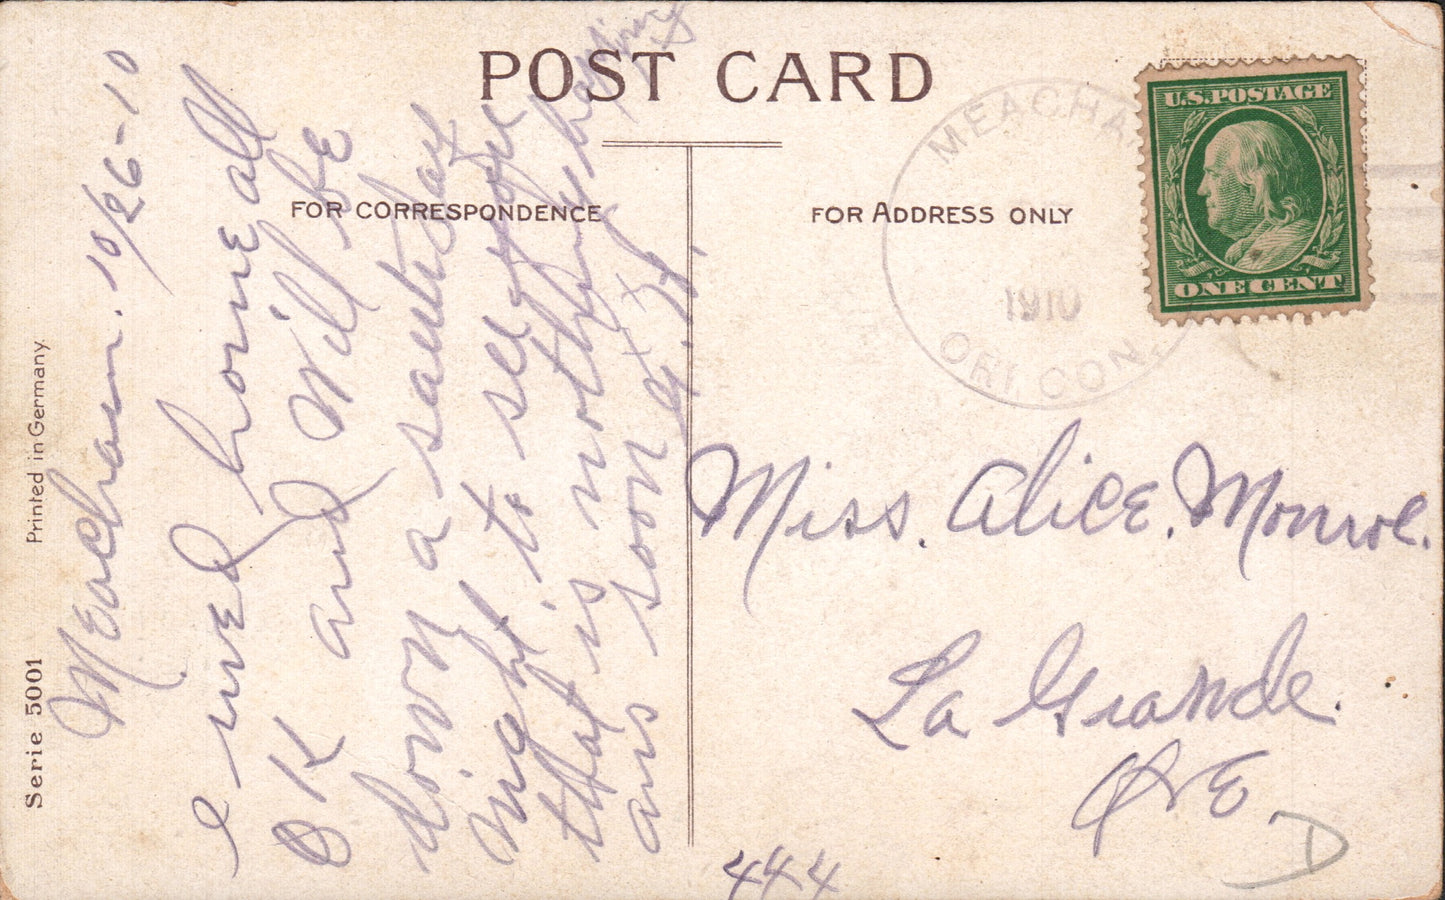 POST CARD
FOR CORRESPONDENCE
FOR ADDRESS ONLY
U.S. POSTAGE
ONE CENT
MEACHA
1910
ORE GON.
Serie 5001 Printed in Germany.
Meacham. 10/26-10
home all
OK and Will be
down a saturday
night to see you
that is nothing happing
ans soon
Miss. Alice. Monroe.
La Grande.
Ore.
444
D